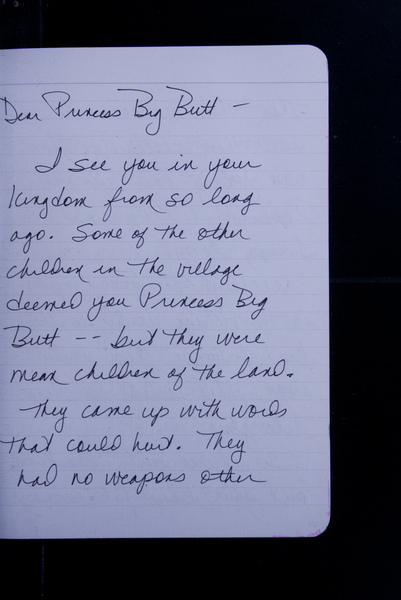 Dear Princess Big Butt –
I see you in your
kingdom from so long
ago. Some of the other
children in the village
deemed you Princess Big
Butt -- but they were
mean children of the land.
They came up with words
that could hurt. They
had no weapons other